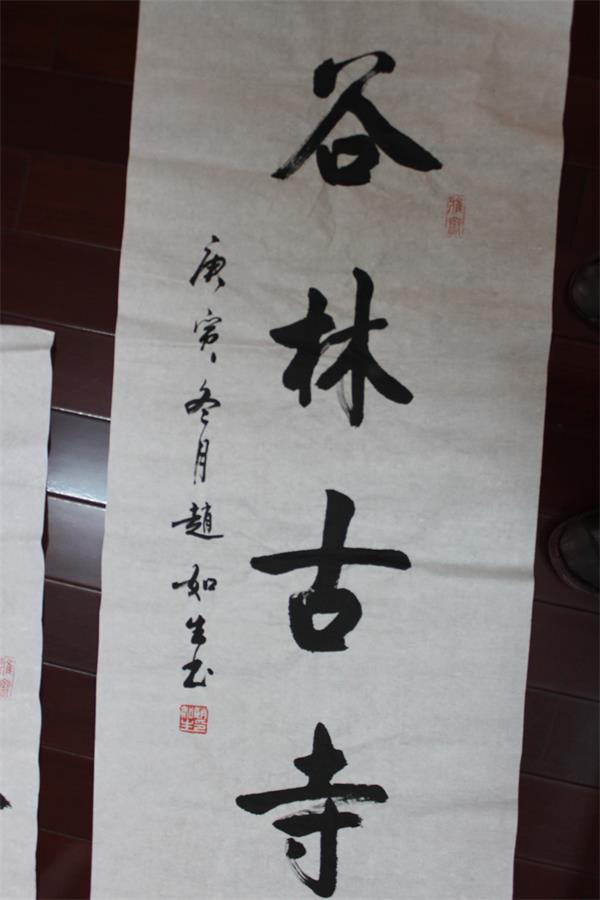 谷林古寺
庚寅冬月趙如生书